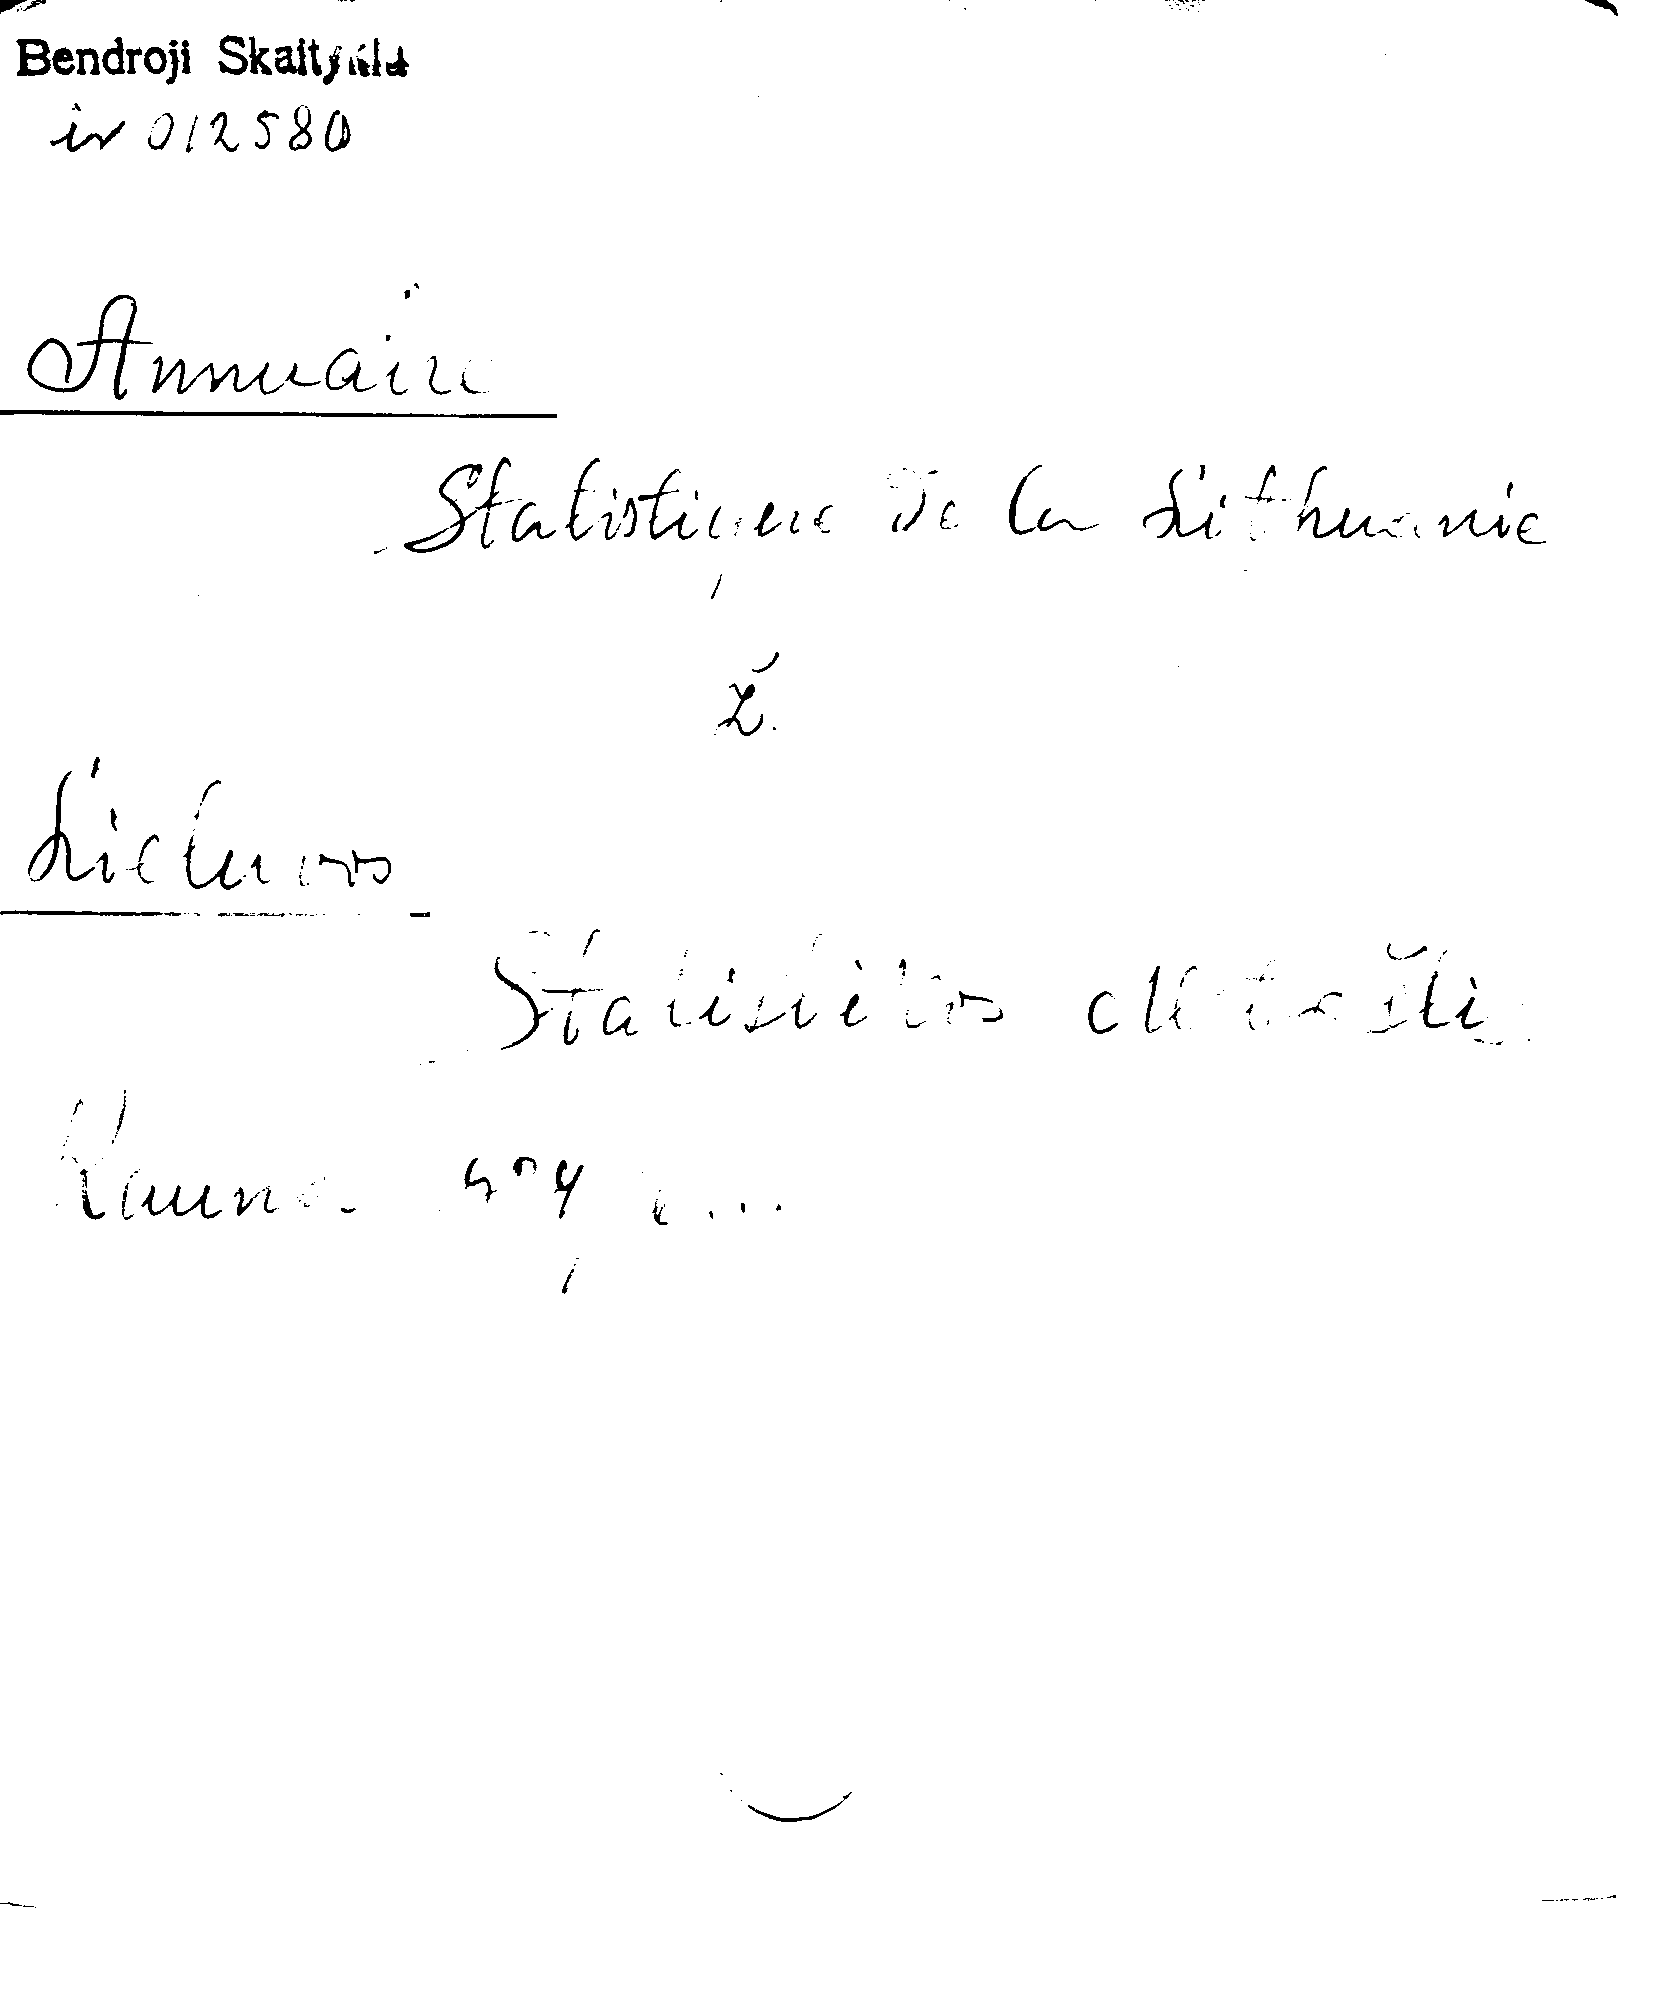 Bendroji Skaitykla
ir 012580
Annuaire
Statistique de la Lithuanie
ž.
Lietuvos
Statistikos
Kaunas